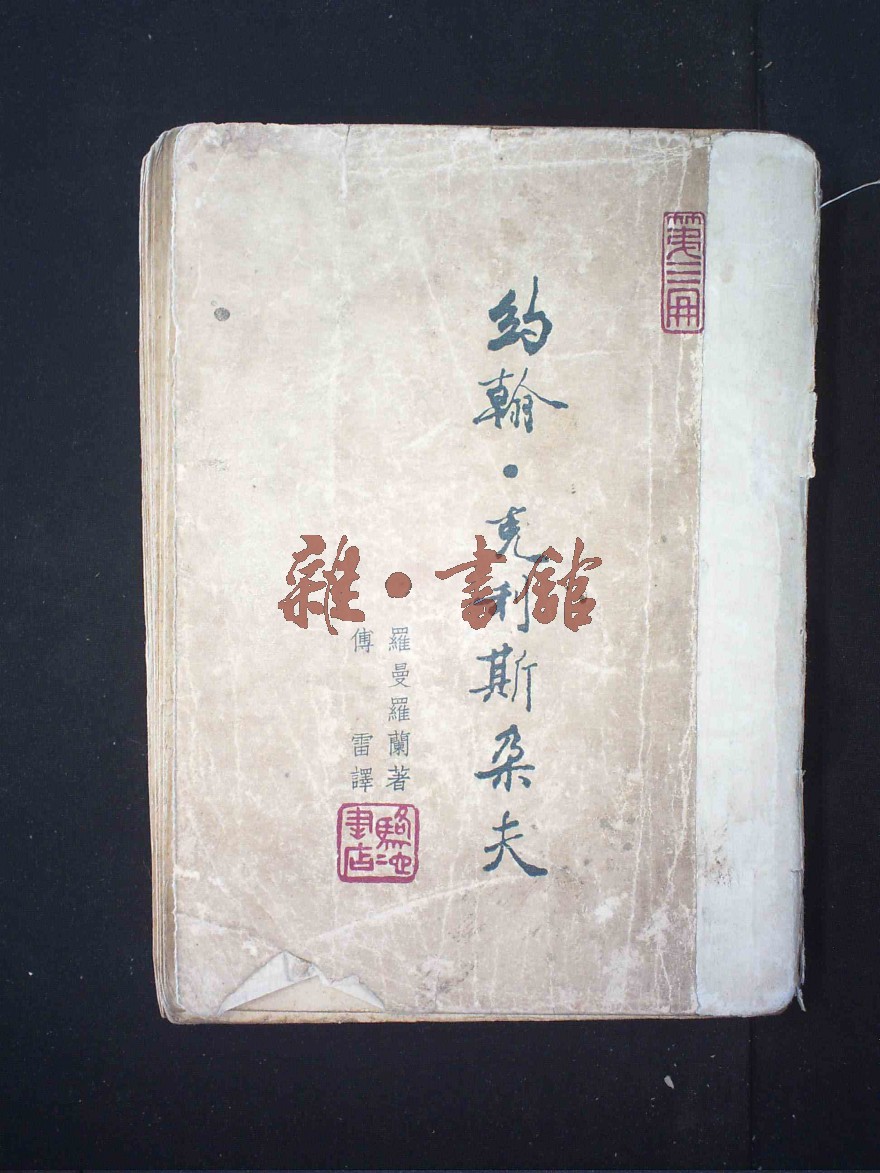 第三冊
約翰·克利斯朵夫
羅曼羅蘭著
傅雷譯
駱駝書店
雜·書館